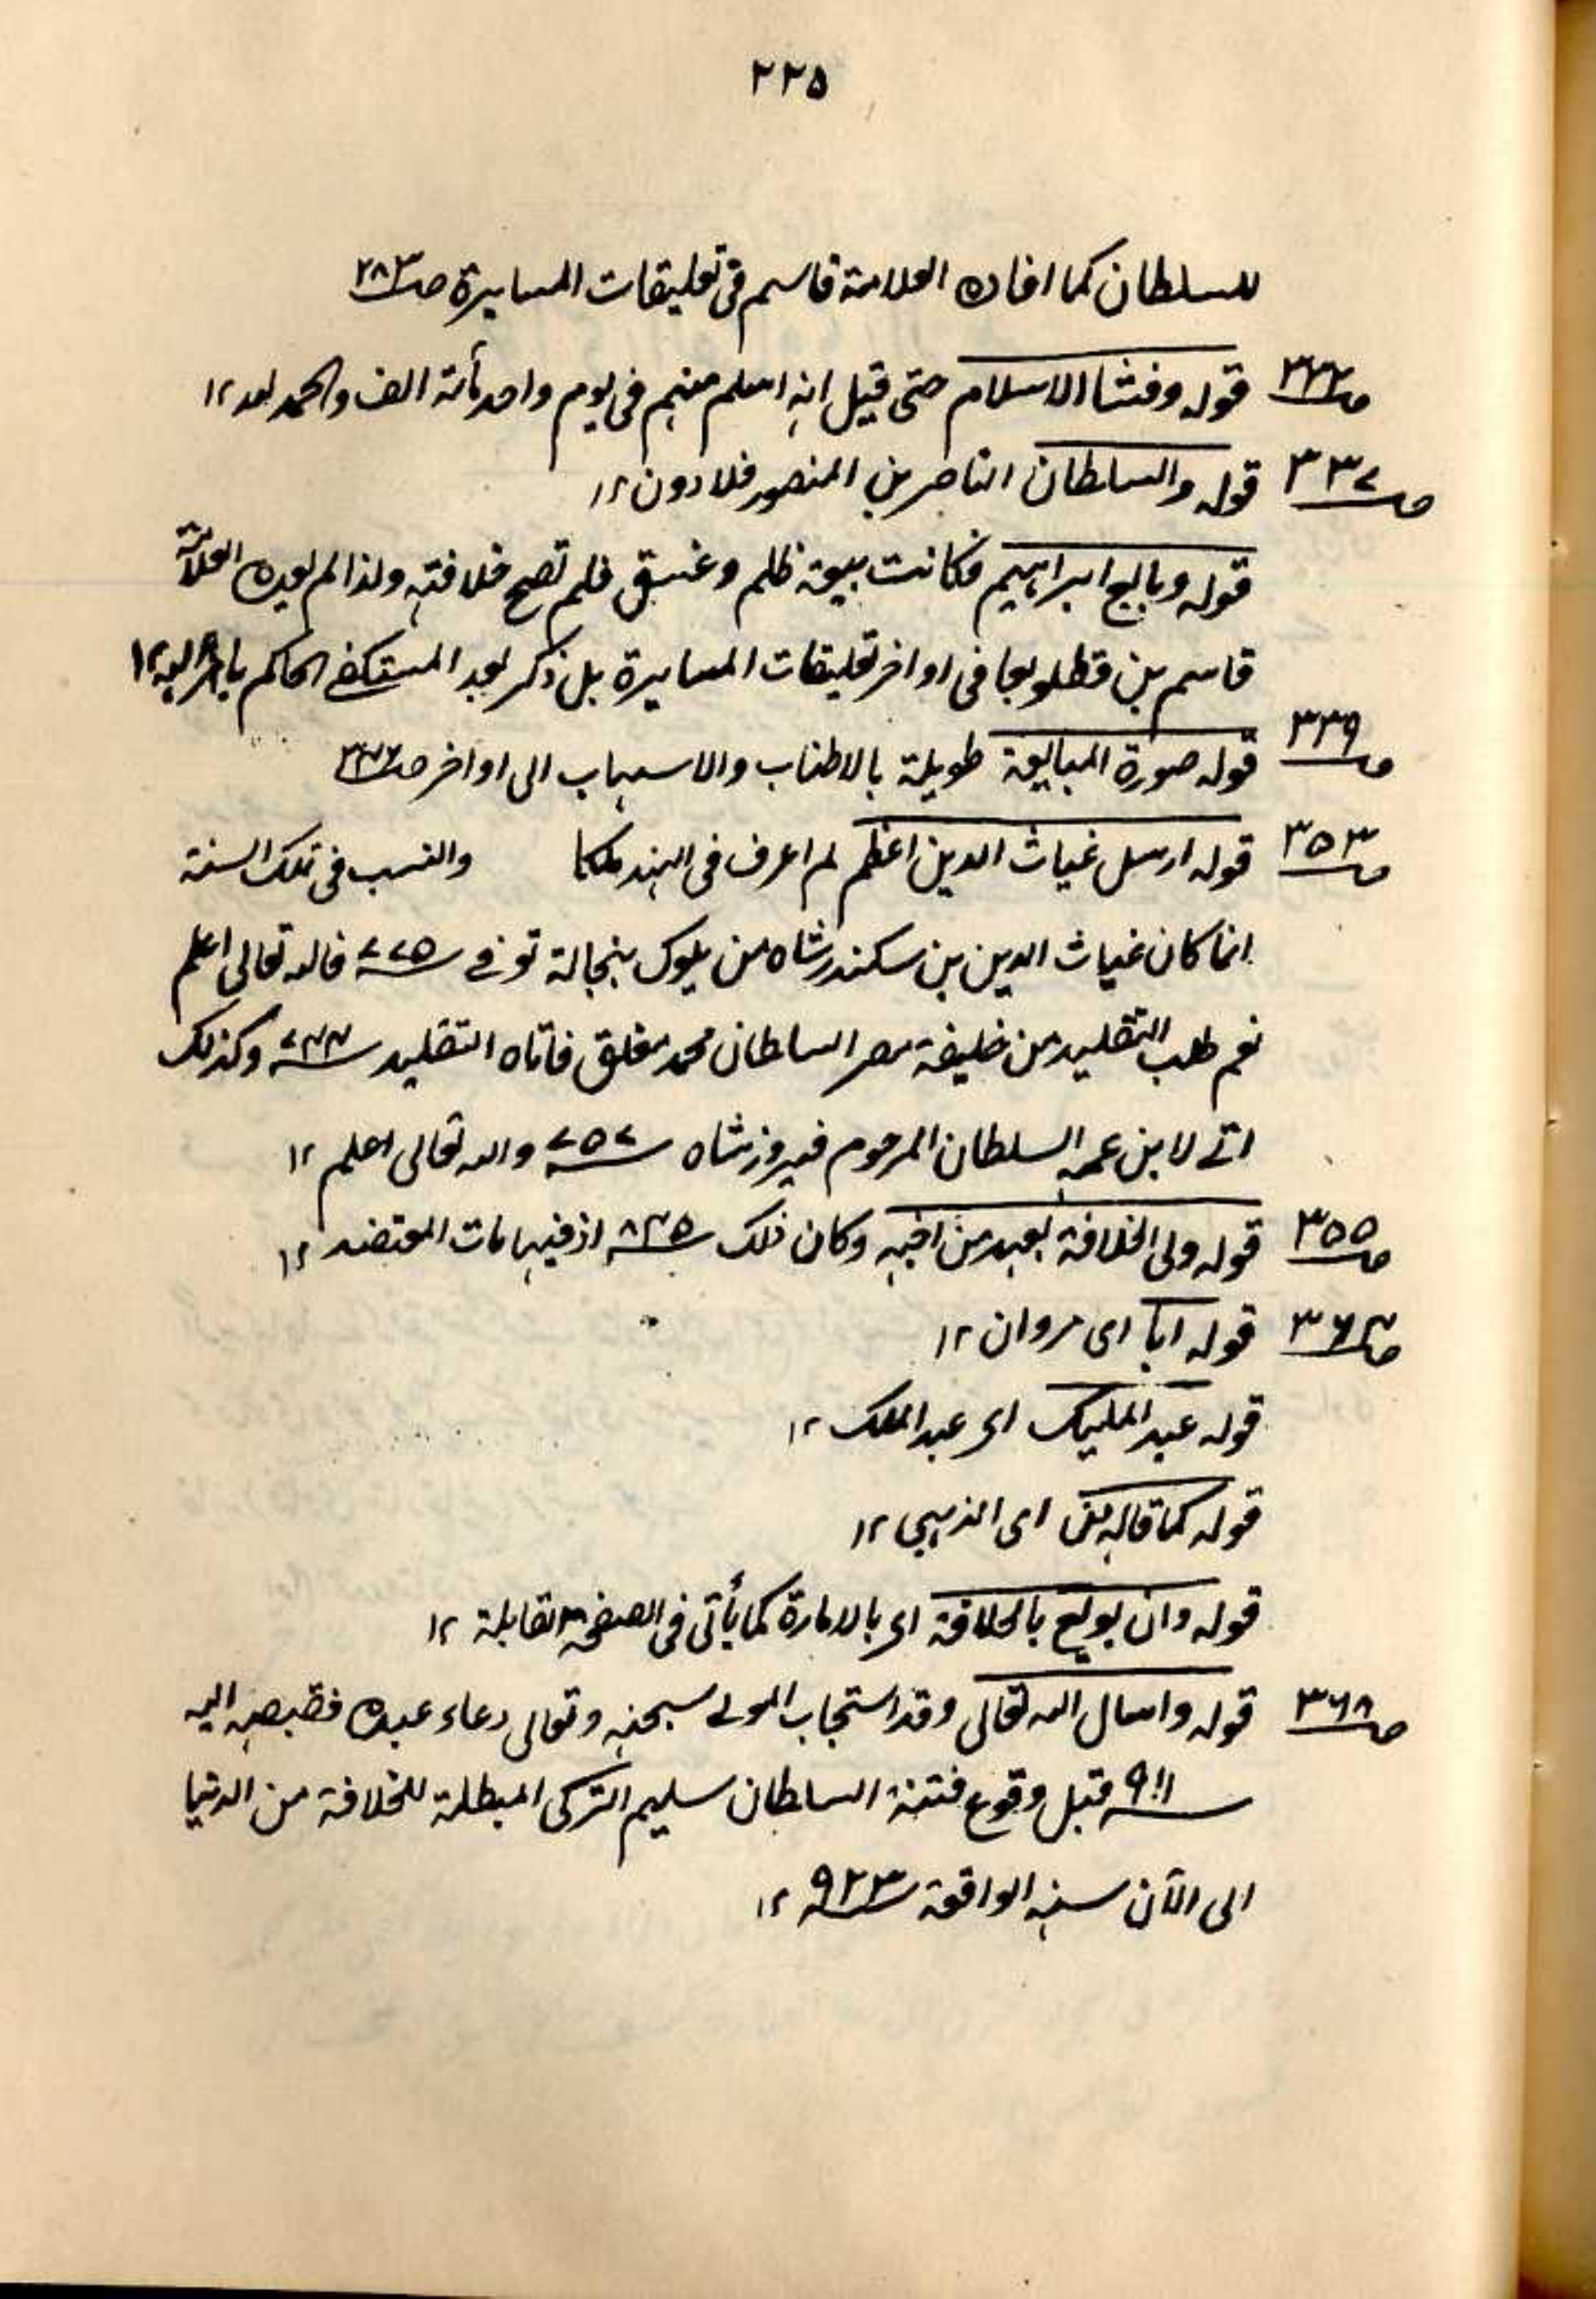 ٢٢٥
للسلطان كما افاده العلامة قاسم فى تعليقات المسايرة صـ٢٨٣
قوله وفشا الاسلام حتى قيل انه اسلم منهم فى يوم واحد مائة الف والحمد لله ١٢
صـ٣٣٧ قوله والسلطان الناصر بن المنصور قلادون ١٢
قوله وبايع ابراہيم فكانت بيعة ظلم وغسق فلم تصح خلافته ولذا لم يعده العلامة
قاسم بن قطلوبغا فى اواخر تعليقات المسايرة بل ذكر بعد المستكفے الحاكم بامر الله ١٢
صـ٣٣٩ قوله صورة المبايعة طويلة بالاطناب والاسهاب الى اواخر
صـ٣٥٣ قوله ارسل غياث الدين اعظم لم اعرف فى الہند ملكا والنسب فى تلك السنة
انما كان غياث الدين بن سكندر شاه من ملوك بنجالة توفے ٧٧٥ فالله تعالى اعلم
نعم طلب التقليد من خليفة مصر السلطان محمد تغلق فاتاه التقليد ٧٤٤ وكذلك
اتے لابن عمه السلطان المرحوم فيروز شاه ٧٥٧ والله تعالى اعلم ١٢
صـ٣٥٥ قوله ولى الخلافة بعهد من اخيه وكان ذلك ٨٤٥ اذ فيها مات المعتضد ١٢
صـ٣٦٤ قوله ابا اى مروان ١٢
قوله عبد المليك اى عبد الملك ١٢
قوله كما قاله اى الذہبى ١٢
قوله وان بويع بالخلافة اى بالامارة كما يأتى فى الصفحة المقابلة ١٢
صـ٣٦٨ قوله واسال الله تعالى وقد استجاب المولے سبحنه وتعالى دعاء عبده فقبضه اليه
٩١١ قبل وقوع فتنة السلطان سليم التركى المبطلة للخلافة من الدنيا
الى الآن سنه الواقعة ٩٢٣ ١٢